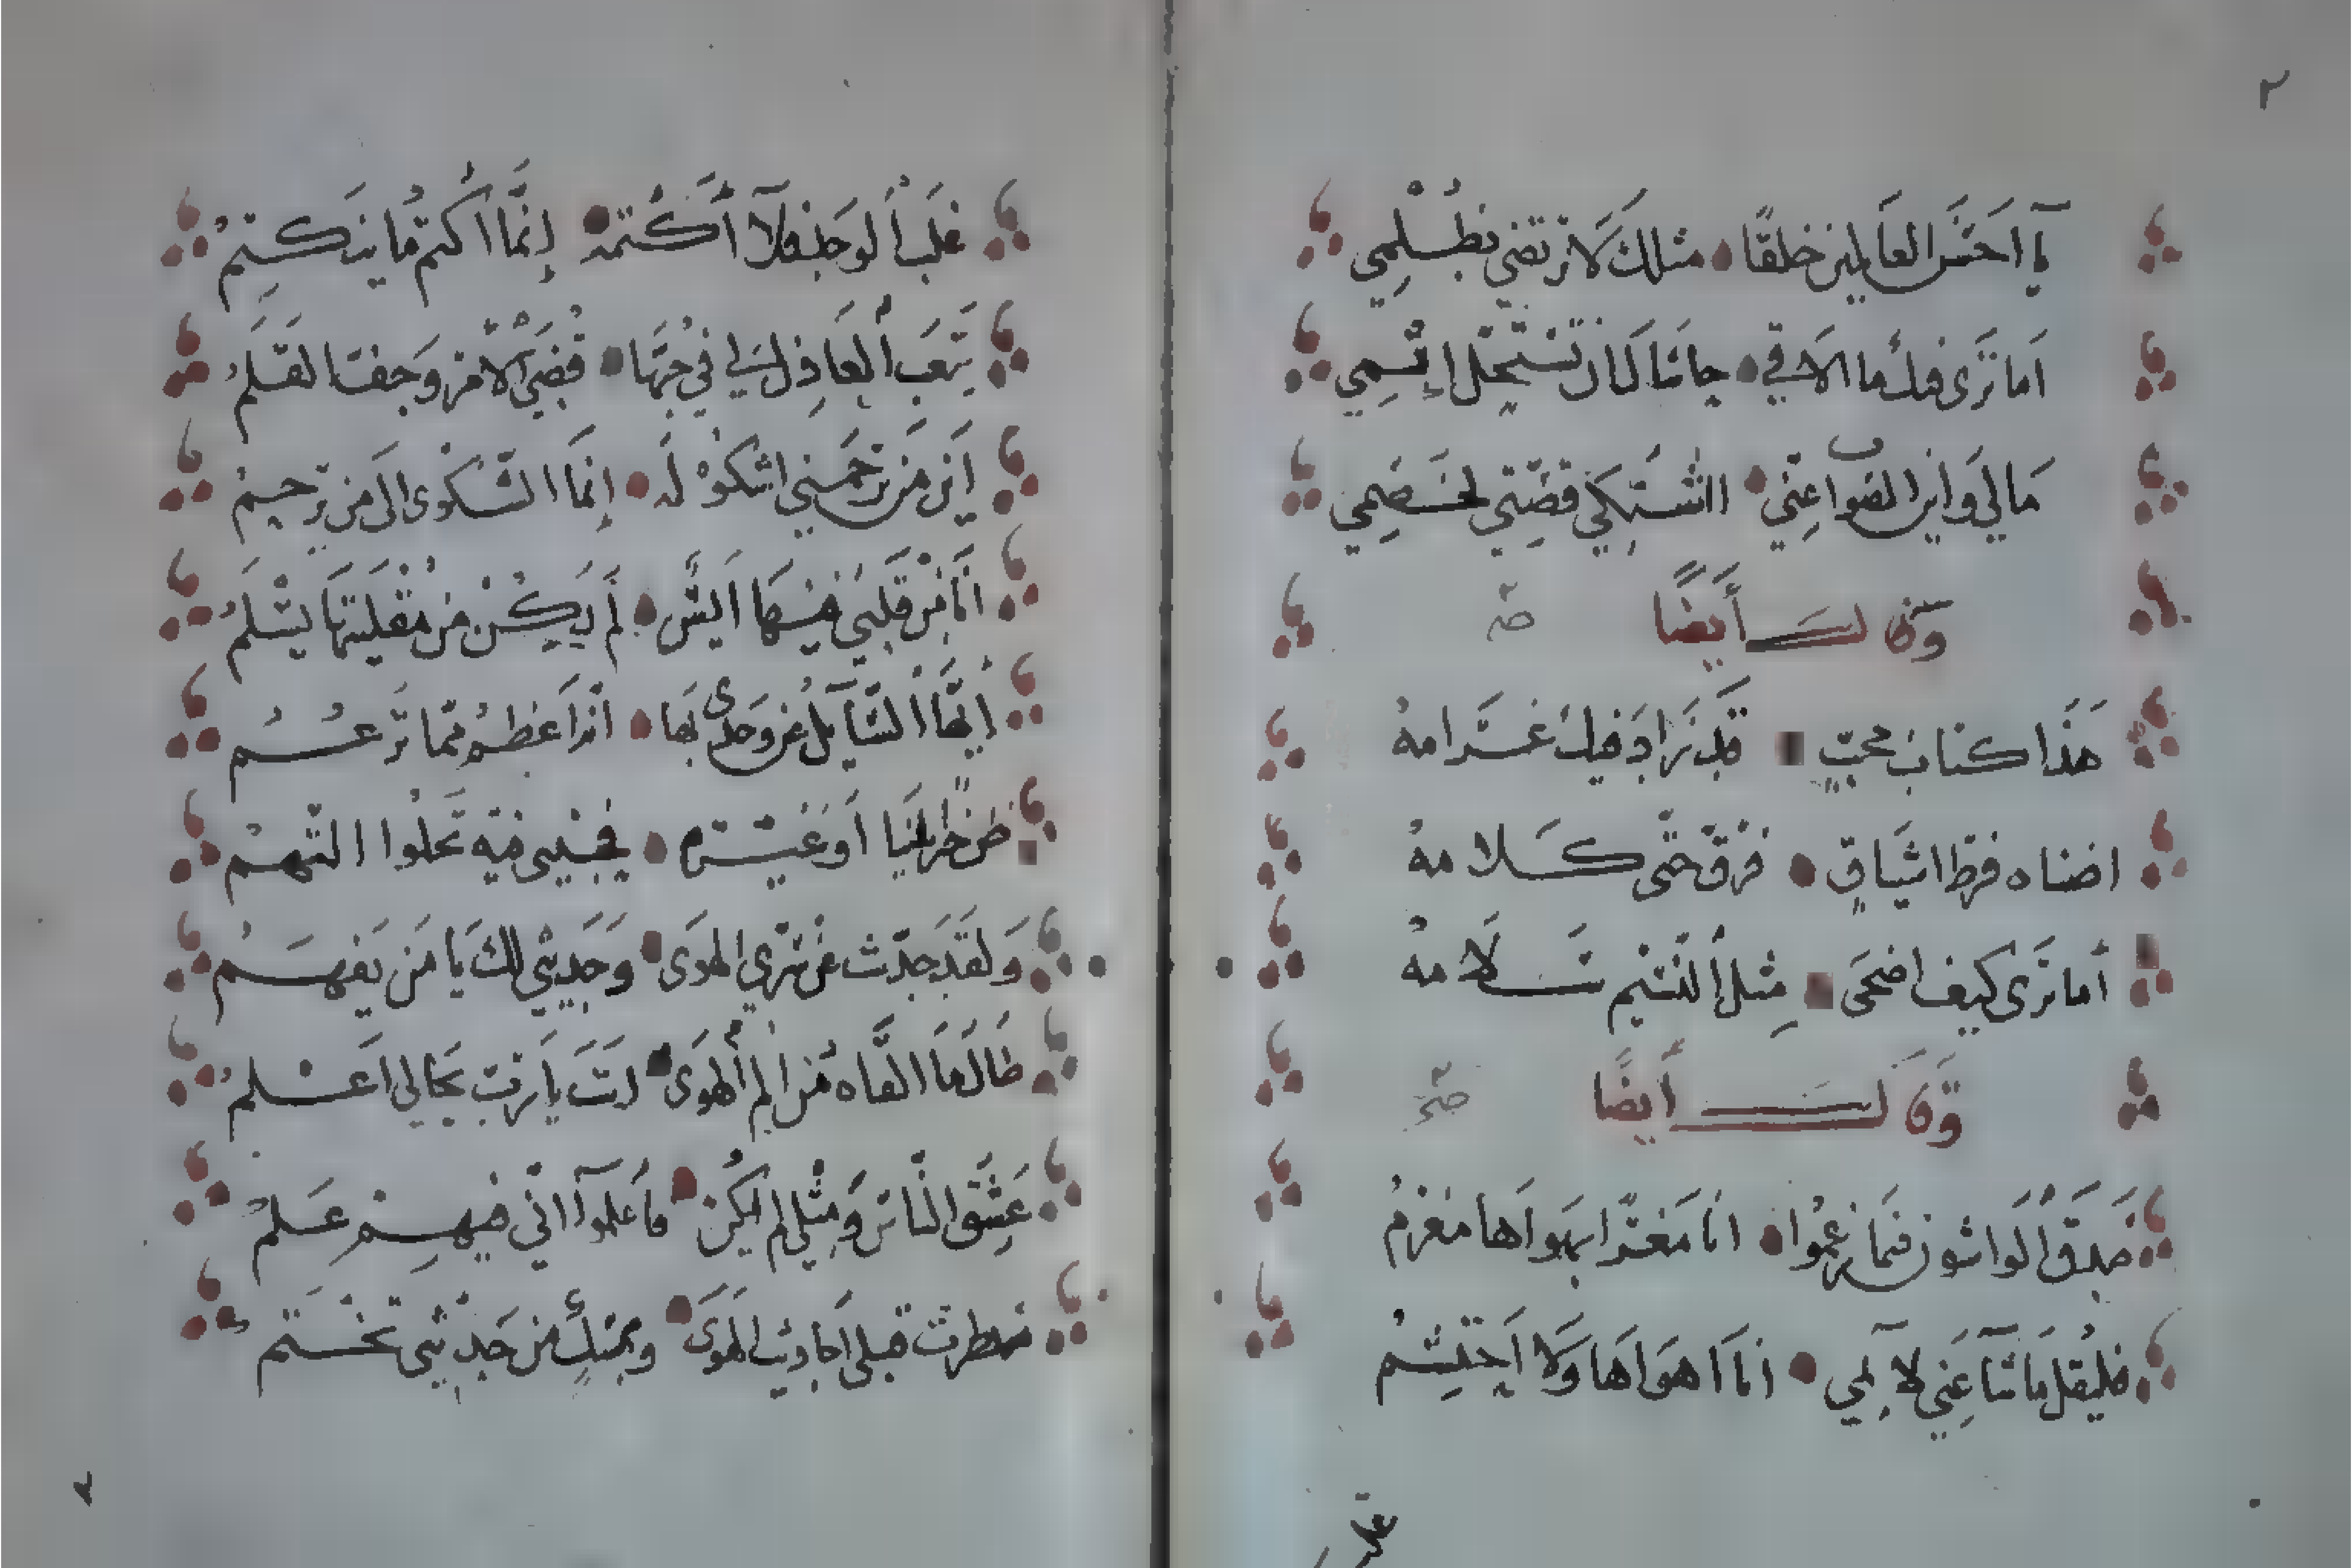 ٢
يآ احسَن العالمين خلقًا ۝ مثلك لا ترتضي بظُلمِي
اَما ترى فيك ما الاقي ۝ حاشاكَ ان تستحلّ إثمِي
مَالي واين المفر عنّي ۝ اشتكي قصّتي لخصمِي
وَقَالَ أَيضًا صح
هَذا كتاب محبٍّ ۝ قد زادَ فيك غرامهُ
اضناه فرط اشتياقٍ ۝ فرقّ حتّى كلامهُ
أما ترى كيف اضحَى ۝ مِثل النسيم سَلامهُ
وَقَالَ أَيضًا صح
صَدقَ الوَاشون فيما زعموا ۝ انا مغرًا بهواها مغرمُ
فليقُل مَا شآ عني لآئمي ۝ انا اهوَاها وَلا اَحتشمُ
غلبَ
غلبَ الوَجد فلآ أَكتمه ۝ إِنّما اكتم ما ينكتمُ
يَتعَب العَاذِل لي في حُبّها ۝ قُضيَ الامر وَجفّ القلَمُ
اَينَ مَن يرحَمني اشكُوْ لَهُ ۝ إِنما الشّكوى الى من يرحمُ
انَا مِن قلبيَ منها آيسٌ ۝ لَم يَكُن من مُقلَتيها يسْلَمُ
أَيّها السّآيل عن وَجدى بهَا ۝ انّه اَعظم ممّا تزعُمُ
ظنّ خيرًا بيننا اَو غيره ۝ فحَبيبي فيه تَحلُوا التّهمُ
وَلقَد حَدّثت عن سرّي الهوَى ۝ وَحَديثي لكَ يَا مَن يَفهمُ
طَالَما القاه من الم الهوَى ۝ انتَ يَا ربّ بحَالى اَعْلمُ
عَشِقَ الناسُ وَمِثلي لم يكن ۝ فاَعلموآ انّي فيهمْ علمُ
سطّرت قبلى اَحاديث الهوَى ۝ وبمِسْكٍ من حَديثي تختَتمُ